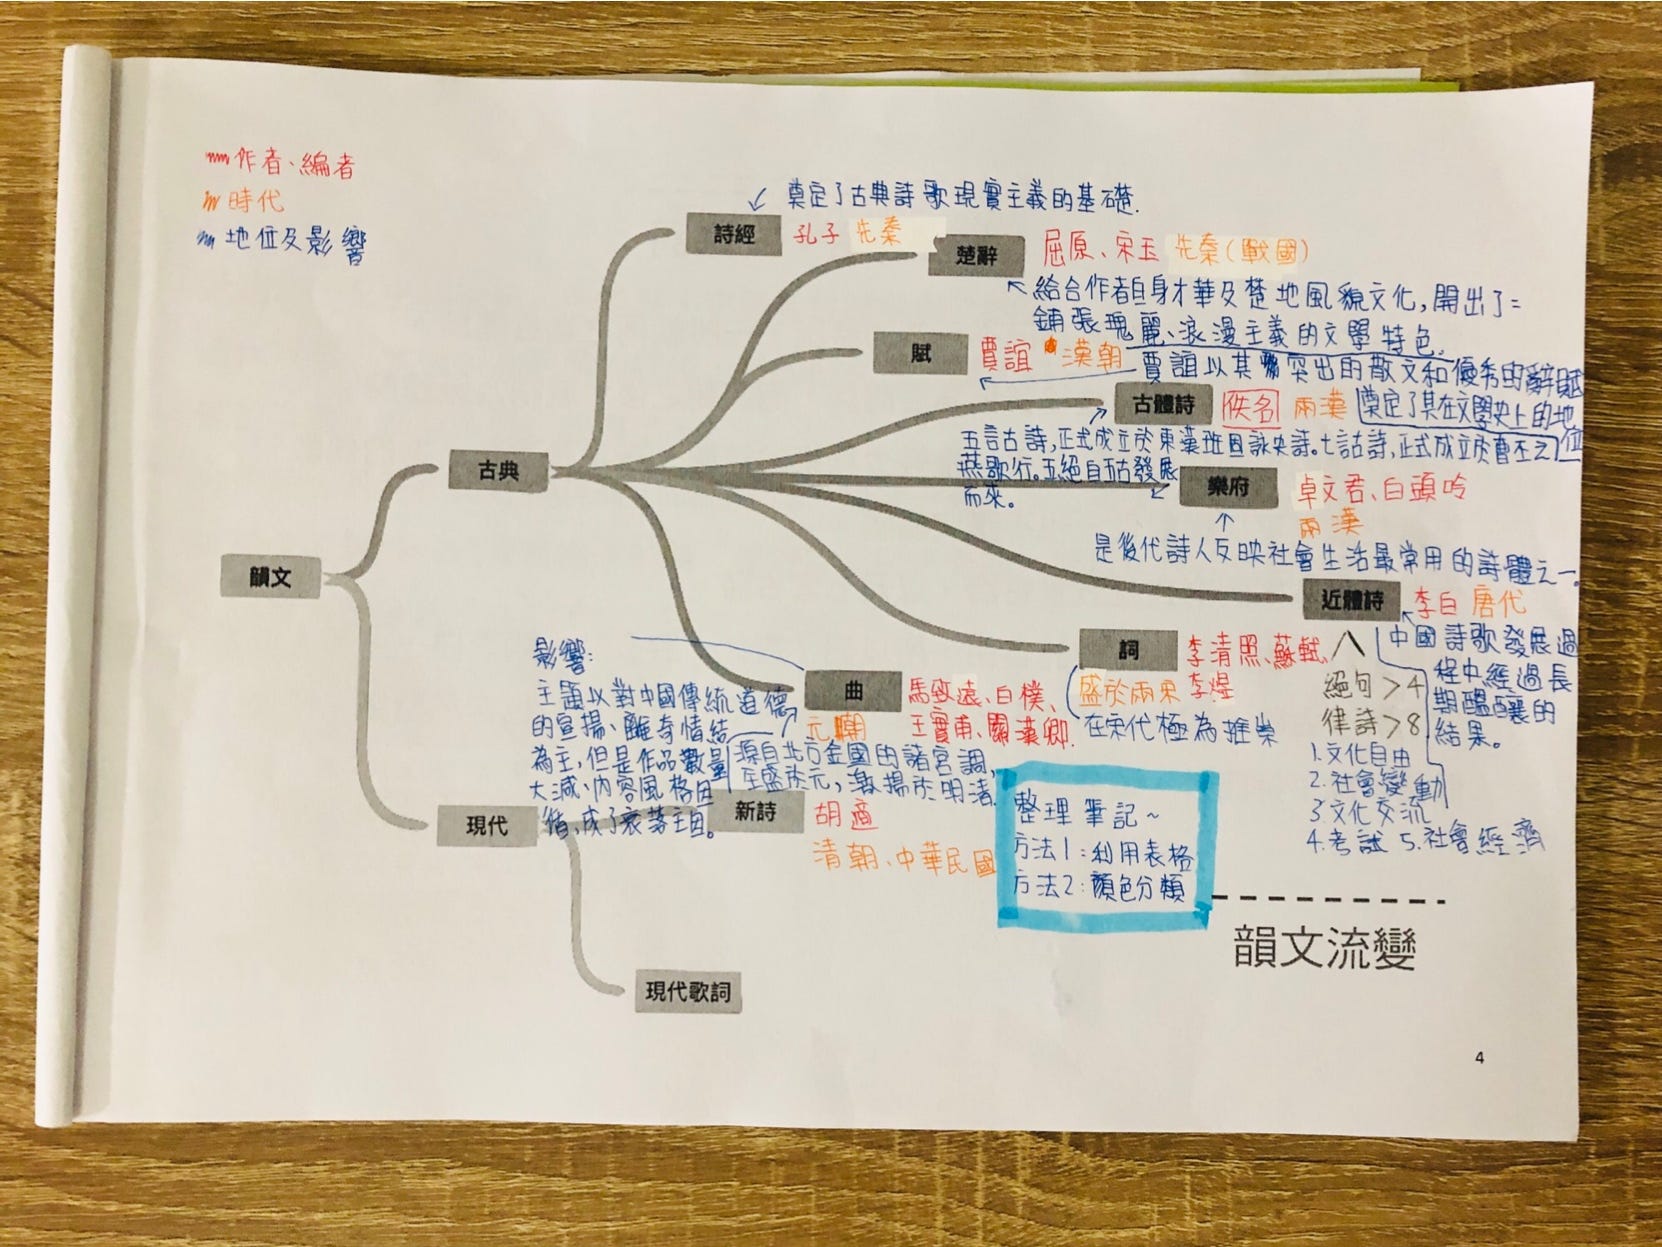 作者、編者
時代
地位及影響
奠定了古典詩歌現實主義的基礎.
詩經 孔子 先秦
楚辭 屈原、宋玉 先秦(戰國)
給合作者自身才華及楚地風貌文化,開出了=
鋪張瑰麗、浪漫主義的文學特色。
賦 賈誼 漢朝
賈誼以其突出的散文和優秀的辭賦
奠定了其在文學史上的地
位
古體詩 佚名 兩漢
五言古詩,正式成立於東漢班固詠史詩。七言古詩,正式成立於曹丕之
燕歌行。五絕自五古發展
而來。
古典
樂府 卓文君、白頭吟
兩漢
是後代詩人反映社會生活最常用的詩體之一。
韻文
近體詩 李白 唐代
中國詩歌發展過
程中經過長
期醞釀的
結果。
絕句>4
律詩>8
1.文化自由
2.社會變動
3.文化交流
4.考試 5.社會經濟
詞 李清照、蘇軾、
李煜
盛於兩宋
在宋代極為推崇
曲 馬致遠、白樸、
王實甫、關漢卿.
元朝
源自北方金國的諸宮調,
全盛於元,激揚於明清.
影響:
主題以對中國傳統道德
的宣揚、離奇情結
為主,但是作品數量
大減、內容風格因
循,成了衰落主因。
現代
新詩 胡適
清朝、中華民國
整理筆記~
方法1:利用表格
方法2:顏色分類
現代歌詞
韻文流變
4